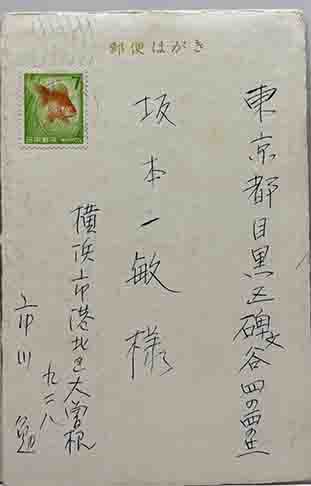 郵便はがき
7
日本郵便
東京都目黒区碑文谷四の四の五
坂本一敏様
横浜市港北区大曽根
九二八
市川 勉